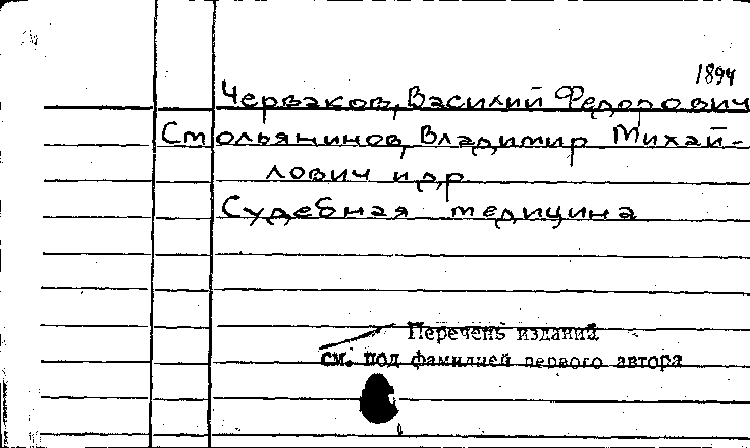 1894
Черваков, Василий Федорович
Смольянинов, Владимир Михай-
лович и др.
Судебная медицина
Перечень изданий
см. под фамилией первого автора